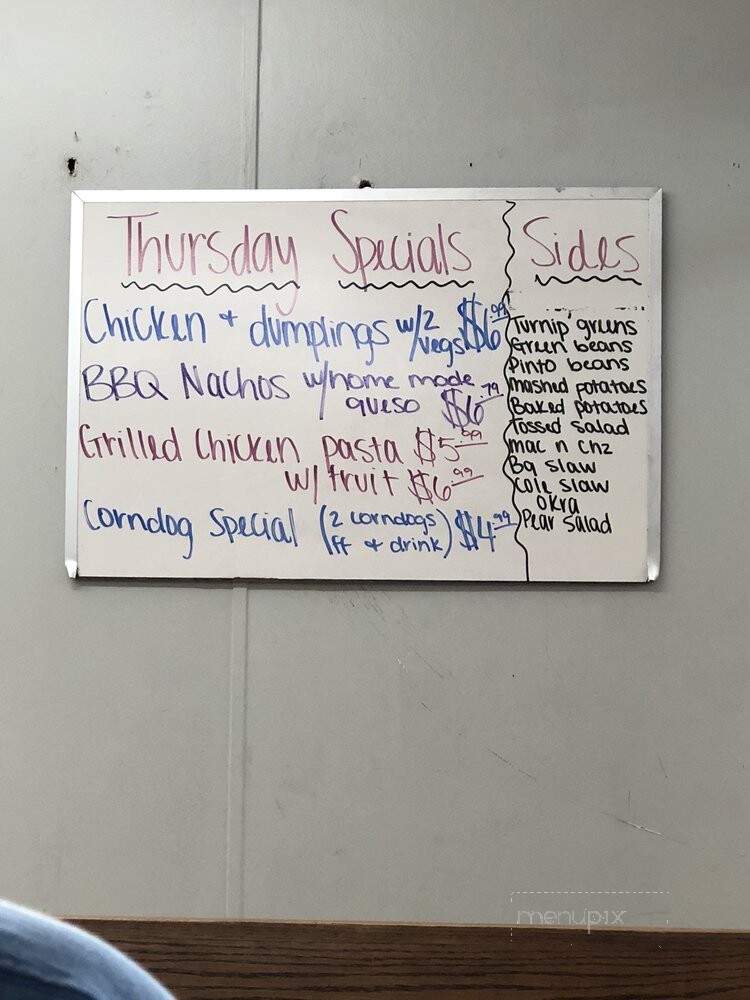 Thursday Specials
Chicken + dumplings w/2 vegs $6.99
BBQ Nachos w/home made
queso $6.79
Grilled Chicken pasta $5.99
w/ fruit $6.99
Corndog Special (2 corndogs
ff + drink) $4.99
Sides
Turnip greens
Green beans
Pinto beans
mashed potatoes
Baked potatoes
Tossed salad
mac n chz
Bq slaw
Cole slaw
okra
Pear salad
menupix